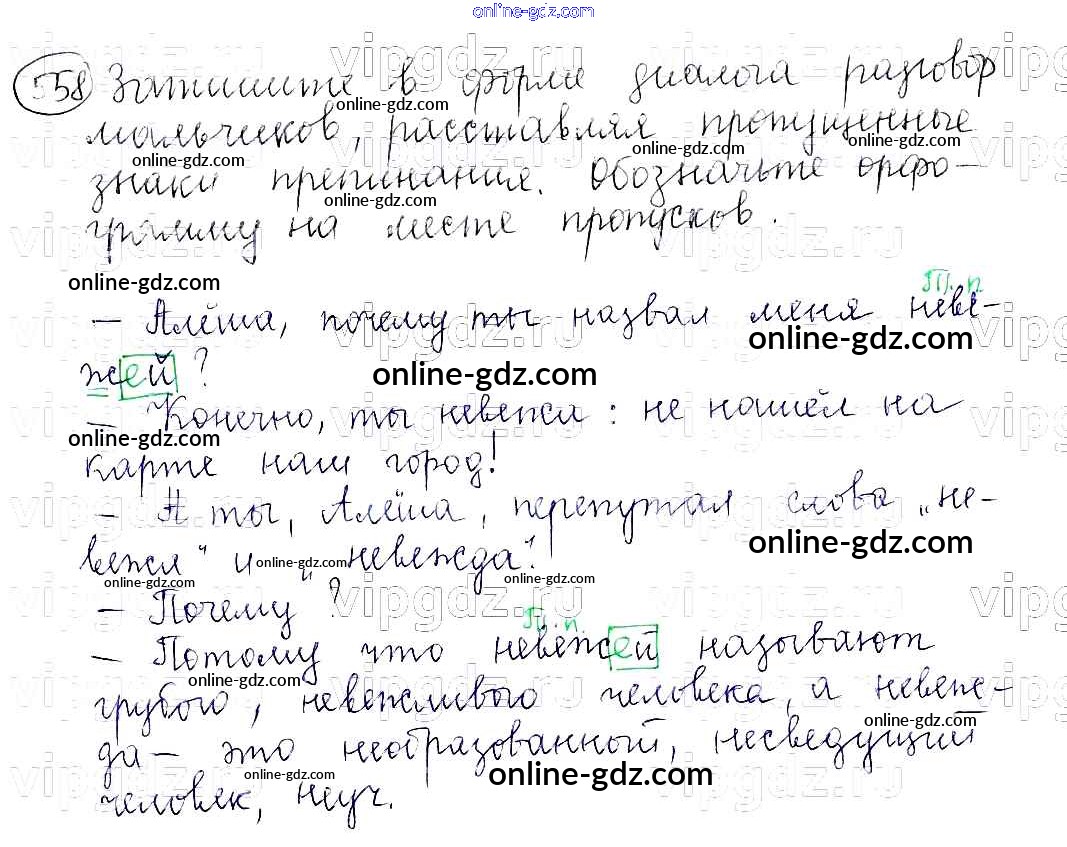 online-gdz.com
558 Запишите в форме диалога разговор
мальчиков, расставляя пропущенные
знаки препинания. Обозначьте орфо-
грамму на месте пропусков.
online-gdz.com
П. п.
– Алёша, почему ты назвал меня неве-
жей?
online-gdz.com
– Конечно, ты невежа: не нашёл на
карте наш город!
– А ты, Алёша, перепутал слова „не-
вежа" и „невежда"!
online-gdz.com
– Почему?
П. п.
– Потому что невежей называют
грубого, невежливого человека, а невеж-
да – это необразованный, несведущий
человек, неуч.
online-gdz.com
vipgdz.ru